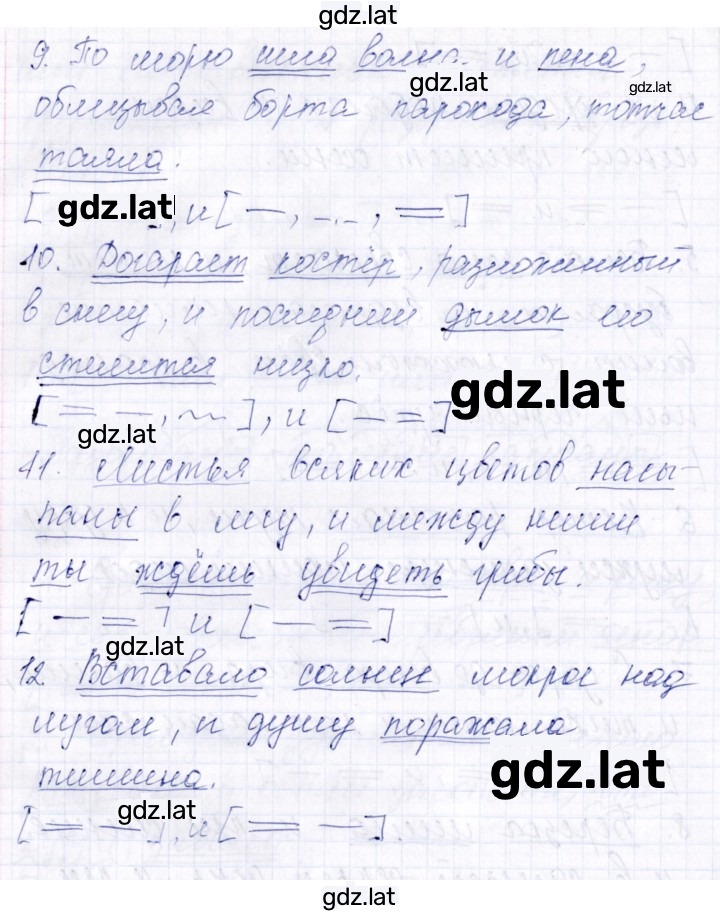 gdz.lat
9. По морю шла волна и пена,
gdz.lat
gdz.lat
облизывая борта парохода, тотчас
таяла.
[ gdz.lat , и [ —, _._ , = ]
10. Догорает костёр, разложенный
в снегу, и последний дымок его
стелится низко.
gdz.lat
[ = —, ~~ ], и [ — = ]
gdz.lat
11. Листья всяких цветов насы-
паны в лесу, и между ними
ты ждёшь увидеть грибы.
[ — = ] и [ — = ]
gdz.lat
12. Вставало солнце мокрое над
лугом, и душу поражала
тишина.
gdz.lat
gdz.lat
[ = — ], и [ = — ].
gdz.lat